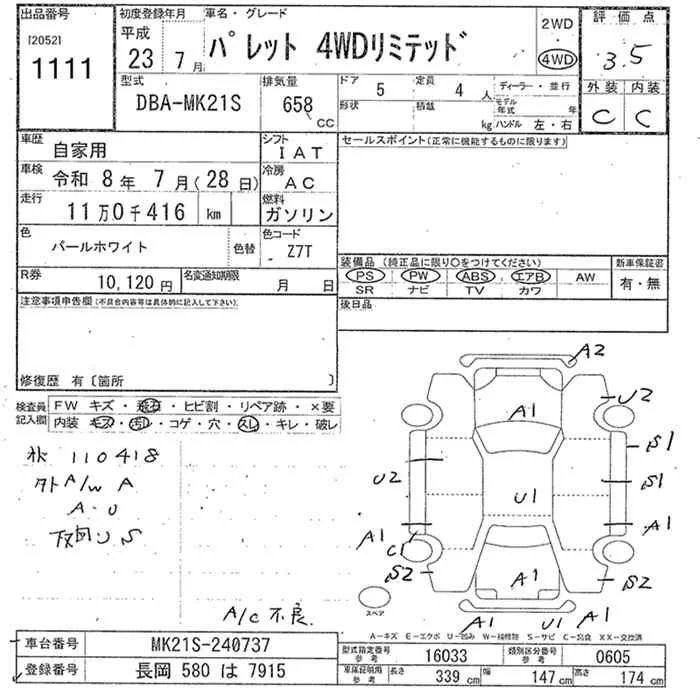 出品番号 初度登録年月 車名・グレード 評価点
[2052] 平成
1111 23 7月 パレット 4WDリミテッド 2WD 4WD 3.5
型式 排気量 ドア 5 定員 4 人 ディーラー・並行 外装 内装
DBA-MK21S 658 CC 形状 積載 kg モデル年式 年 C C
ハンドル 左・右
車歴 自家用 シフト IAT セールスポイント(正常に機能するものに限ります)
車検 令和 8年 7月(28日) 冷房 AC
走行 11万0千416 km 燃料 ガソリン
色 パールホワイト 色替 色コード Z7T
装備品(純正品に限り○をつけてください) 新車保証書
PS PW ABS エアB AW 有・無
SR ナビ TV カワ
R券 10,120円 名変通知期限 月 日
後日品
注意事項申告欄(不具合内容等は具体的に記入して下さい)
修復歴 有〔箇所 〕
検査員記入欄 FW キズ・飛石・ヒビ割・リペア跡・×要
内装 キズ・汚レ・コゲ・穴・スレ・キレ・破レ
110418
A/W A
A・U
S
A/C 不良
A2
U2
A1
S1
U2
S1
U1
A1
A1
C1
S2
A1
S2
スペア
A1 U1 A1
A-キズ E-エクボ U-凹み W-補修跡 S-サビ C-腐食 XX-交換済
車台番号 MK21S-240737
登録番号 長岡 580 は 7915
型式指定番号 参考 16033 類別区分番号 参考 0605
車検証記載 参考 長さ 339 cm 幅 147 cm 高さ 174 cm